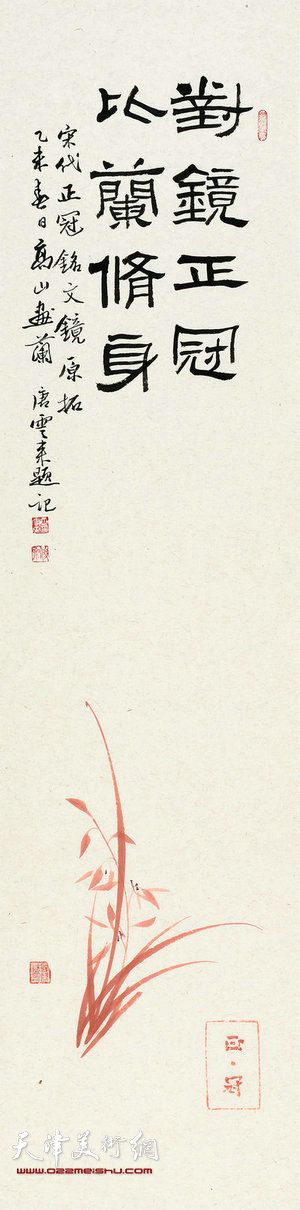 對鏡正冠
比蘭脩身
宋代正冠銘文鏡原拓
乙未春日高山畫蘭 唐雲來題記
正冠
天津美術網
www.022meishu.com